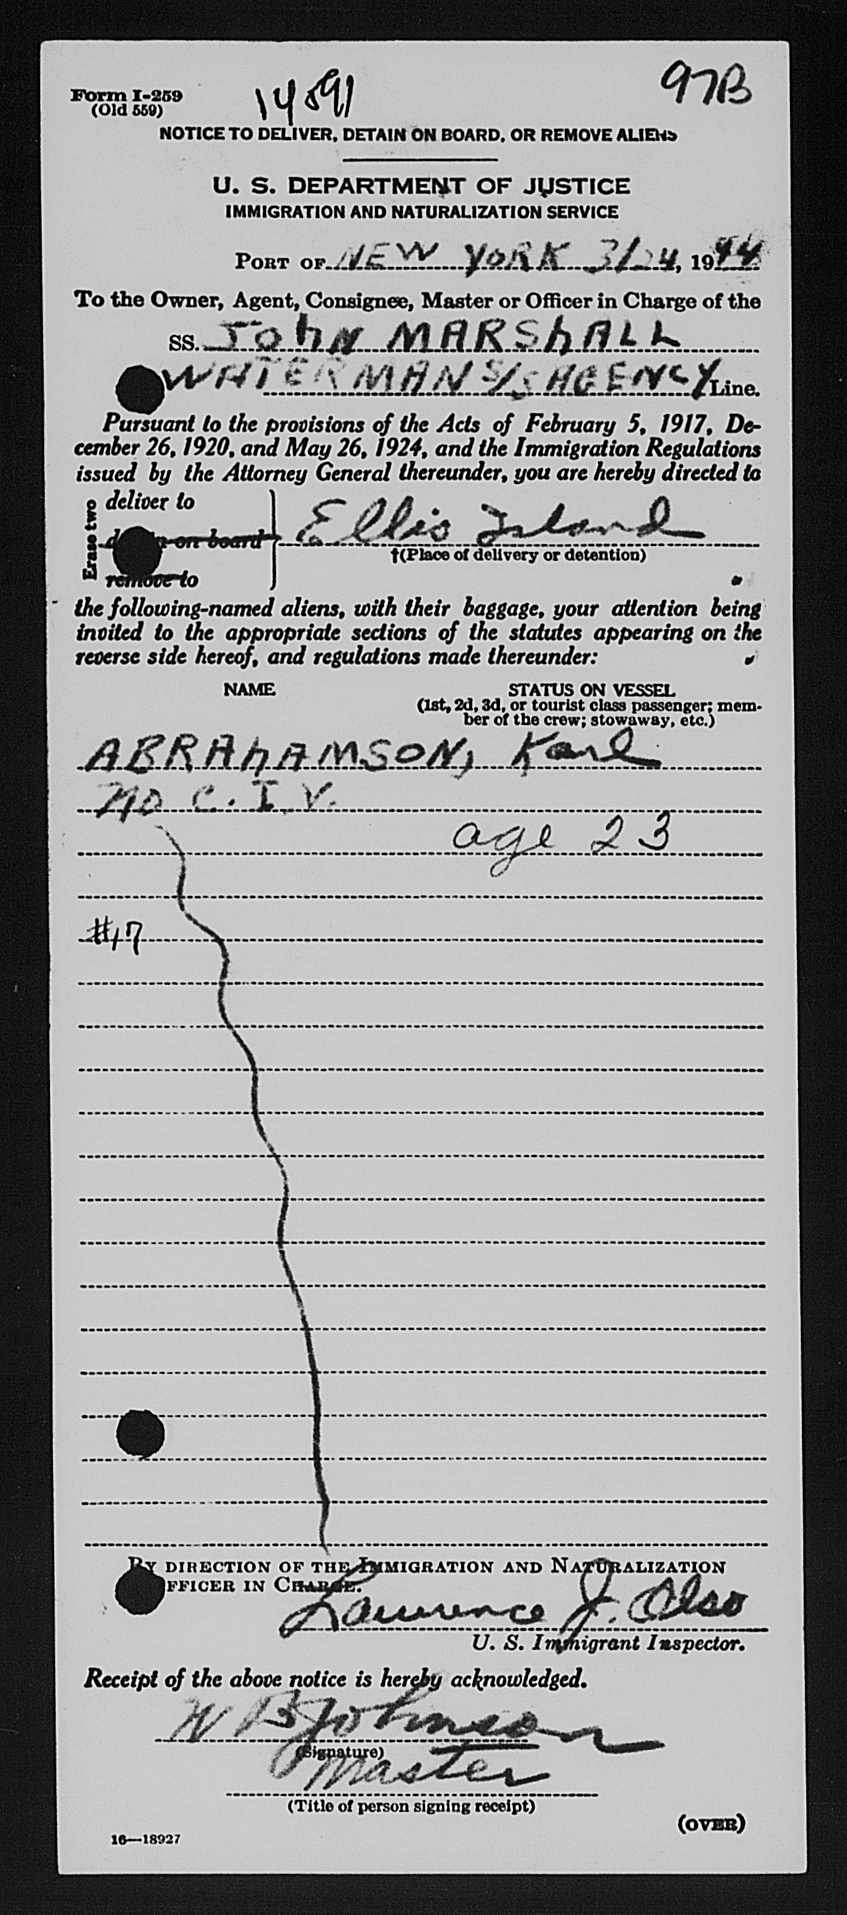 Form I-259
(Old 559)
14591
97B
NOTICE TO DELIVER, DETAIN ON BOARD, OR REMOVE ALIENS
U. S. DEPARTMENT OF JUSTICE
IMMIGRATION AND NATURALIZATION SERVICE
PORT OF NEW YORK 3/24, 1944
To the Owner, Agent, Consignee, Master or Officer in Charge of the
SS. JOhN MARShALL
WATERMAN S/S AGENCY Line.
Pursuant to the provisions of the Acts of February 5, 1917, De-
cember 26, 1920, and May 26, 1924, and the Immigration Regulations
issued by the Attorney General thereunder, you are hereby directed to
Erase two
deliver to
on board
remove to
Ellis Island
†(Place of delivery or detention)
the following-named aliens, with their baggage, your attention being
invited to the appropriate sections of the statutes appearing on the
reverse side hereof, and regulations made thereunder:
NAME
STATUS ON VESSEL
(1st, 2d, 3d, or tourist class passenger; mem-
ber of the crew; stowaway, etc.)
ABRAhAMSON, Karl
No C. I. V.
age 23
#17
BY DIRECTION OF THE IMMIGRATION AND NATURALIZATION
OFFICER IN CHARGE.
Lawrence J. Olso
U. S. Immigrant Inspector.
Receipt of the above notice is hereby acknowledged.
W B Johnson
(Signature)
Master
(Title of person signing receipt)
(OVER)
16—18927